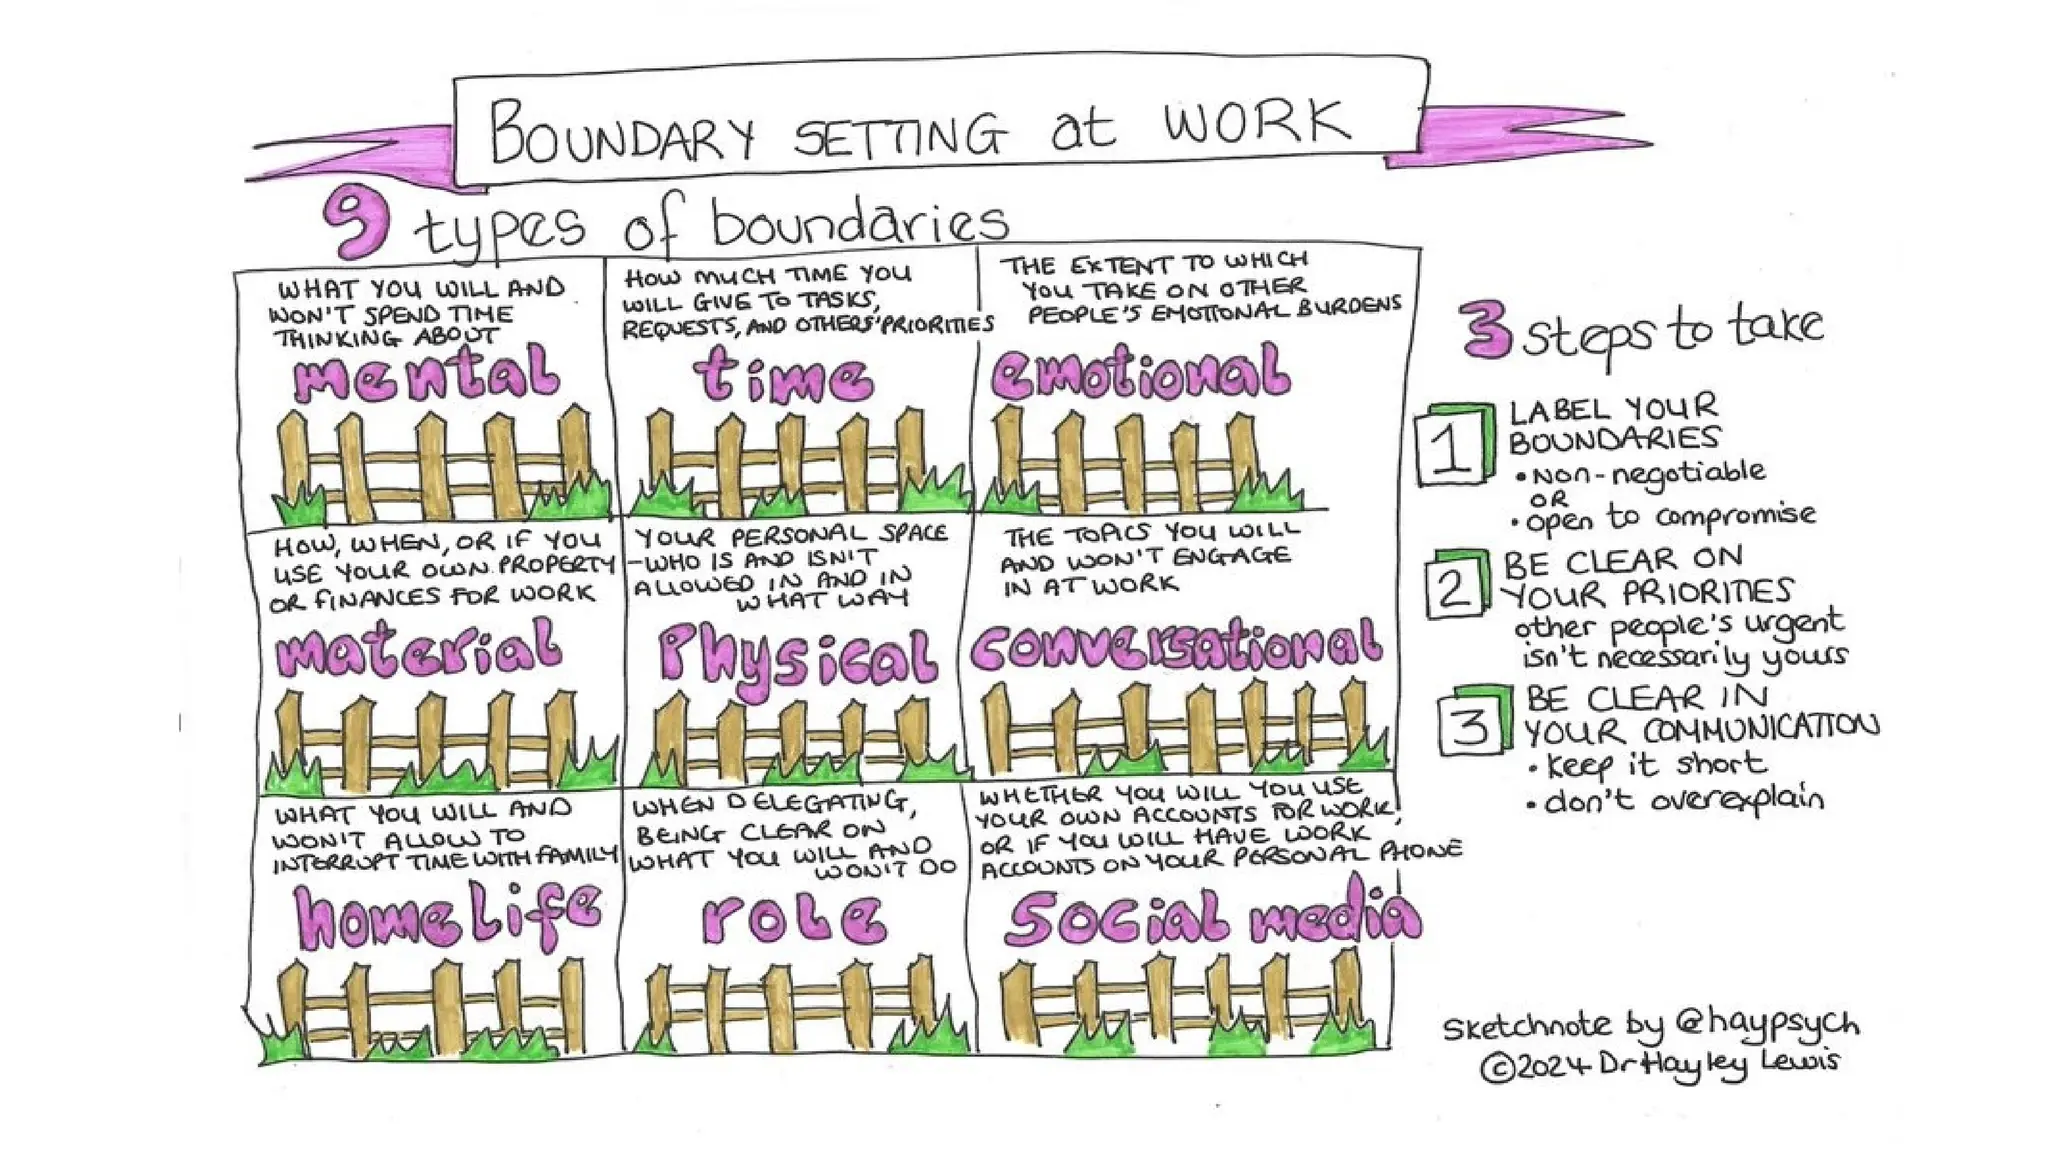 BOUNDARY SETTING at WORK
9 types of boundaries
WHAT YOU WILL AND
WON'T SPEND TIME
THINKING ABOUT
mental
HOW MUCH TIME YOU
WILL GIVE TO TASKS,
REQUESTS, AND OTHERS' PRIORITIES
time
THE EXTENT TO WHICH
YOU TAKE ON OTHER
PEOPLE'S EMOTIONAL BURDENS
emotional
HOW, WHEN, OR IF YOU
USE YOUR OWN PROPERTY
OR FINANCES FOR WORK
material
YOUR PERSONAL SPACE
-WHO IS AND ISN'T
ALLOWED IN AND IN
WHAT WAY
Physical
THE TOPICS YOU WILL
AND WON'T ENGAGE
IN AT WORK
conversational
WHAT YOU WILL AND
WON'T ALLOW TO
INTERRUPT TIME WITH FAMILY
home Life
WHEN DELEGATING,
BEING CLEAR ON
WHAT YOU WILL AND
WON'T DO
role
WHETHER YOU WILL YOU USE
YOUR OWN ACCOUNTS FOR WORK,
OR IF YOU WILL HAVE WORK
ACCOUNTS ON YOUR PERSONAL PHONE
Social media
3 steps to take
1 LABEL YOUR
BOUNDARIES
• Non-negotiable
OR
• open to compromise
2 BE CLEAR ON
YOUR PRIORITIES
other people's urgent
isn't necessarily yours
3 BE CLEAR IN
YOUR COMMUNICATION
• Keep it short
• don't overexplain
Sketchnote by @haypsych
©2024 Dr Hayley Lewis